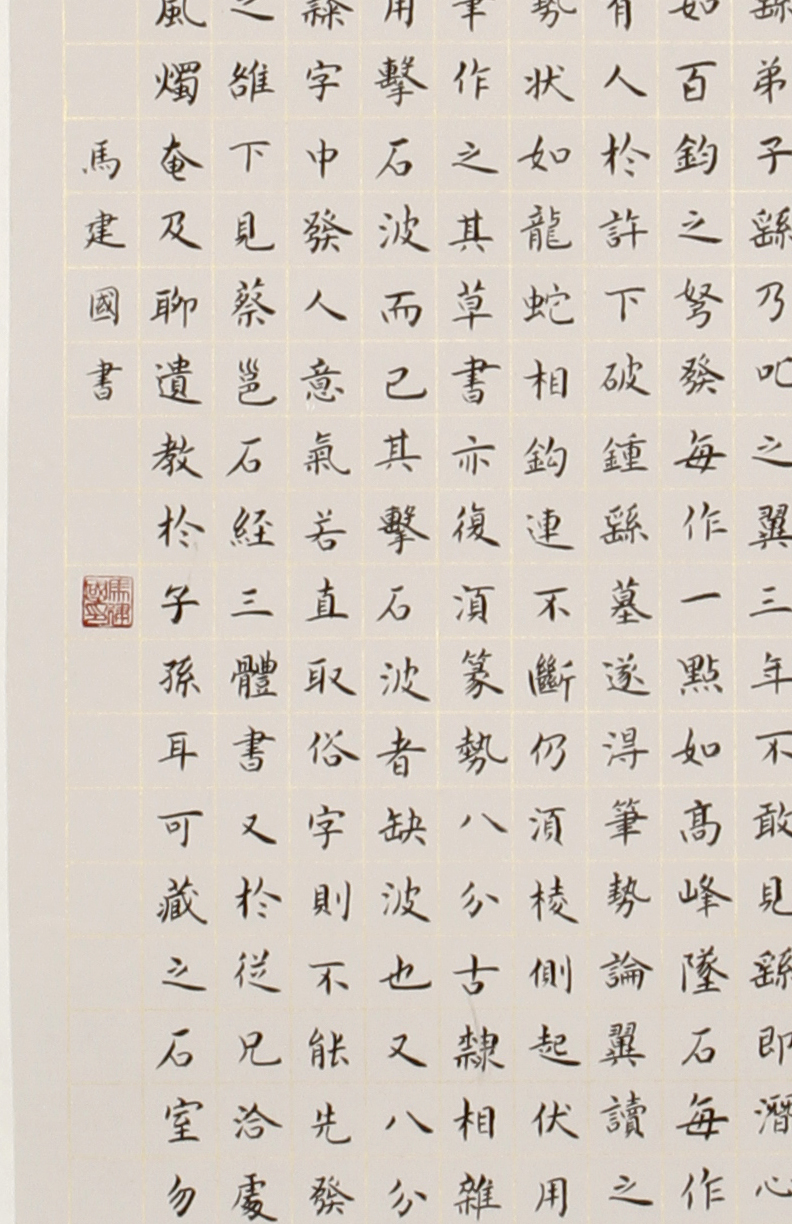 繇弟子繇乃叱之翼三年不敢見繇即潛心
如百鈞之弩發每作一點如高峰墜石每作
有人於許下破鍾繇墓遂得筆勢論翼讀之
勢状如龍蛇相鈎連不斷仍須棱側起伏用
筆作之其草書亦復須篆勢八分古隸相雜
用擊石波而已其擊石波者缺波也又八分
隸字中發人意氣若直取俗字則不能先發
之雒下見蔡邕石経三體書又於從兄洽處
風燭奄及聊遺教於子孫耳可藏之石室勿
馬建國書